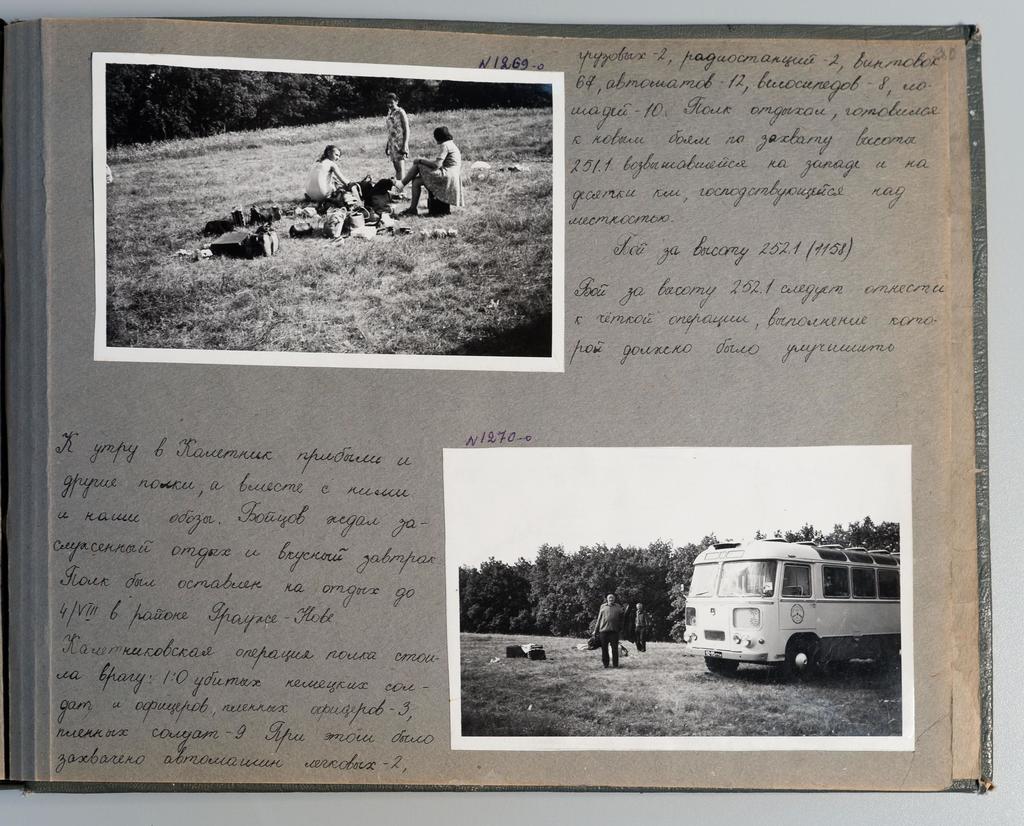 К утру в Калетник прибыли и
другие полки, а вместе с ними
и наши обозы. Бойцов ждал за-
служенный отдых и вкусный завтрак
Полк был оставлен на отдых до
4/VIII в районе Граужe-Нове
Калетниковская операция полка стои-
ла врагу: 1:0 убитых немецких сол-
дат и офицеров, пленных офицеров-3,
пленных солдат-9 При этом было
захвачено автомашин легковых-2,
N1269-о
30
грузовых-2, радиостанций-2, винтовок
67, автоматов-12, велосипедов-8, ло-
шадей-10. Полк отдыхал, готовился
к новым боям по захвату высоты
251.1 возвышавшейся на западе и на
десятки км, господствующейся над
местностью.
Бой за высоту 252.1 (1158)
Бой за высоту 252.1 следует отнести
к чёткой операции, выполнение кото-
рой должно было улучшить
N1270-о